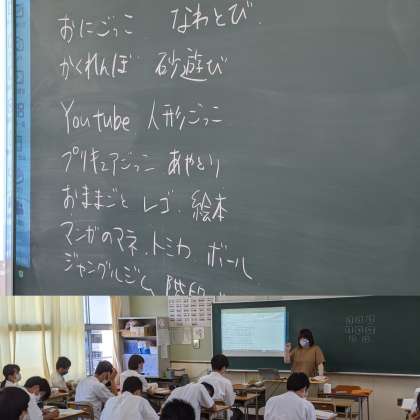 おにごっこ なわとび
かくれんぼ 砂遊び
Youtube 人形ごっこ
プリキュアごっこ あやとり
おままごと レゴ. 絵本
マンガのマネ. トミカ. ボール
ジャングルジム